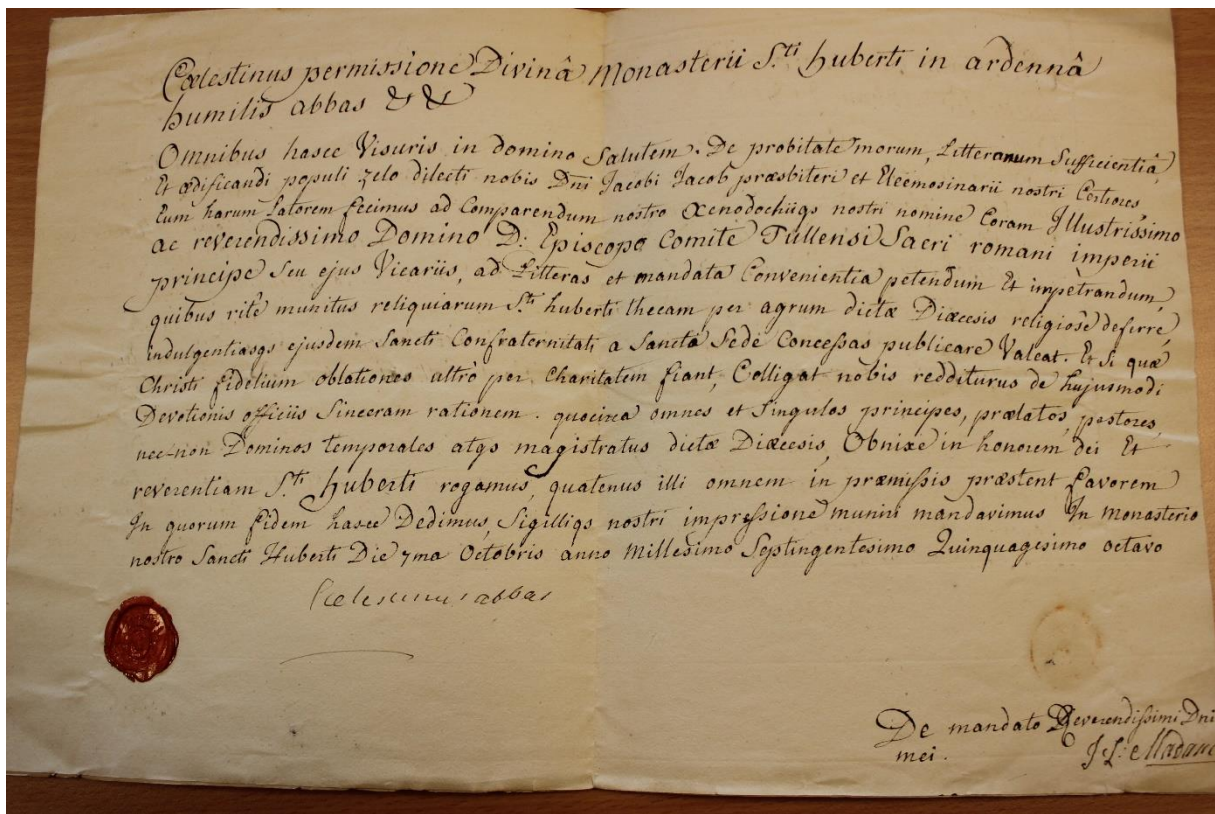 Cœlestinus permissione Divinâ Monasterii S.ti huberti in ardennâ
humilis abbas & &
Omnibus hasce Visuris in domino Salutem. De probitate morum, Litterarum Sufficientiâ,
Et ædificandi populi zelo dilecti nobis Dni Jacobi Jacob præsbiteri et Eleemosinarii nostri Certiores
Eum harum Latorem fecimus ad Comparendum nostro Œenodochiiqs nostri nomine Coram Jllustrissimo
ac reverendissimo Domino D: Episcopo Comite Tullensi Sacri romani imperii
principe Seu ejus Vicariis, ad Litteras et mandata Convenientia petendum Et impetrandum,
quibus rite munitus reliquiarum S.ti huberti thecam per agrum dictæ Diæcesis religiosè deferre,
indulgentiasqs ejusdem Sancti Confraternitati a Sanctâ Sede Concessas publicare Valeat. Et Si quæ
Christi fidelium oblationes ultrò per Charitatem fiant, Colligat nobis redditurus de hujusmodi
Devotionis officiis Sinceram rationem. quocirca omnes et Singulos principes, prælatos, pastores,
nec-non Dominos temporales atqs magistratus dictæ Diæcesis, Obnixe in honorem dei Et
reverentiam S.ti huberti rogamus, quatenus illi omnem in præmissis præstent favorem
In quorum fidem hasce Dedimus, Sigilliqs nostri impressione muniri mandavimus In monasterio
nostro Sancti Huberti Die 7ma Octobris anno Millesimo Septingentesimo Quinquagesimo octavo
Celestinus abbas
De mandato Reverendissimi Dni
mei.